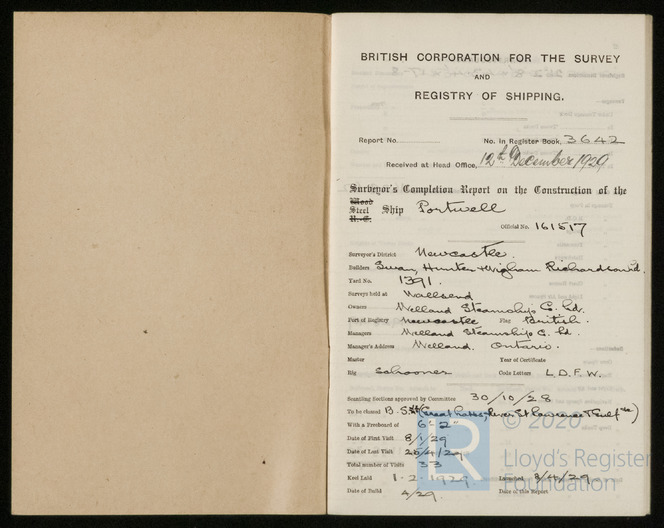 BRITISH CORPORATION FOR THE SURVEY
AND
REGISTRY OF SHIPPING.
Report No. No. in Register Book, 3642
Received at Head Office, 12th December 1929
Surveyor's Completion Report on the Construction of the
Wood
Steel Ship Portwell
Official No. 161517
Surveyor's District Newcastle.
Builders Swan, Hunter & Wigham Richardson Ld.
Yard No. 1391.
Surveys held at Wallsend
Owners Welland Steamship C. Ld.
Port of Registry Newcastle Flag British.
Managers Welland Steamships C. Ld.
Manager's Address Welland. Ontario.
Master Year of Certificate
Rig Schooner Code Letters L.D.F.W.
Scantling Sections approved by Committee 30/10/28
To be classed B.S.* (Great Lakes, River St Lawrence & Gulf)
With a Freeboard of 6'-2"
Date of First Visit 8/1/29
Date of Last Visit /4/29
Total number of Visits 33
Keel Laid 1-2-1929. Launched /4/29
Date of Build 4/29. Date of this Report
LR © 2020
Lloyd's Register
Foundation